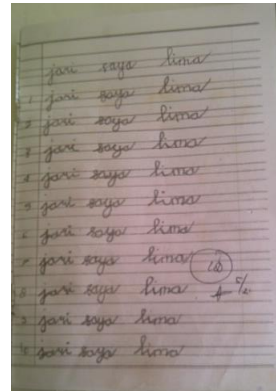 jari saya lima
1 jari saya lima
2 jari saya lima
3 jari saya lima
4 jari saya lima
5 jari saya lima
6 jari saya lima
7 jari saya lima
8 jari saya lima
9 jari saya lima
10 jari saya lima